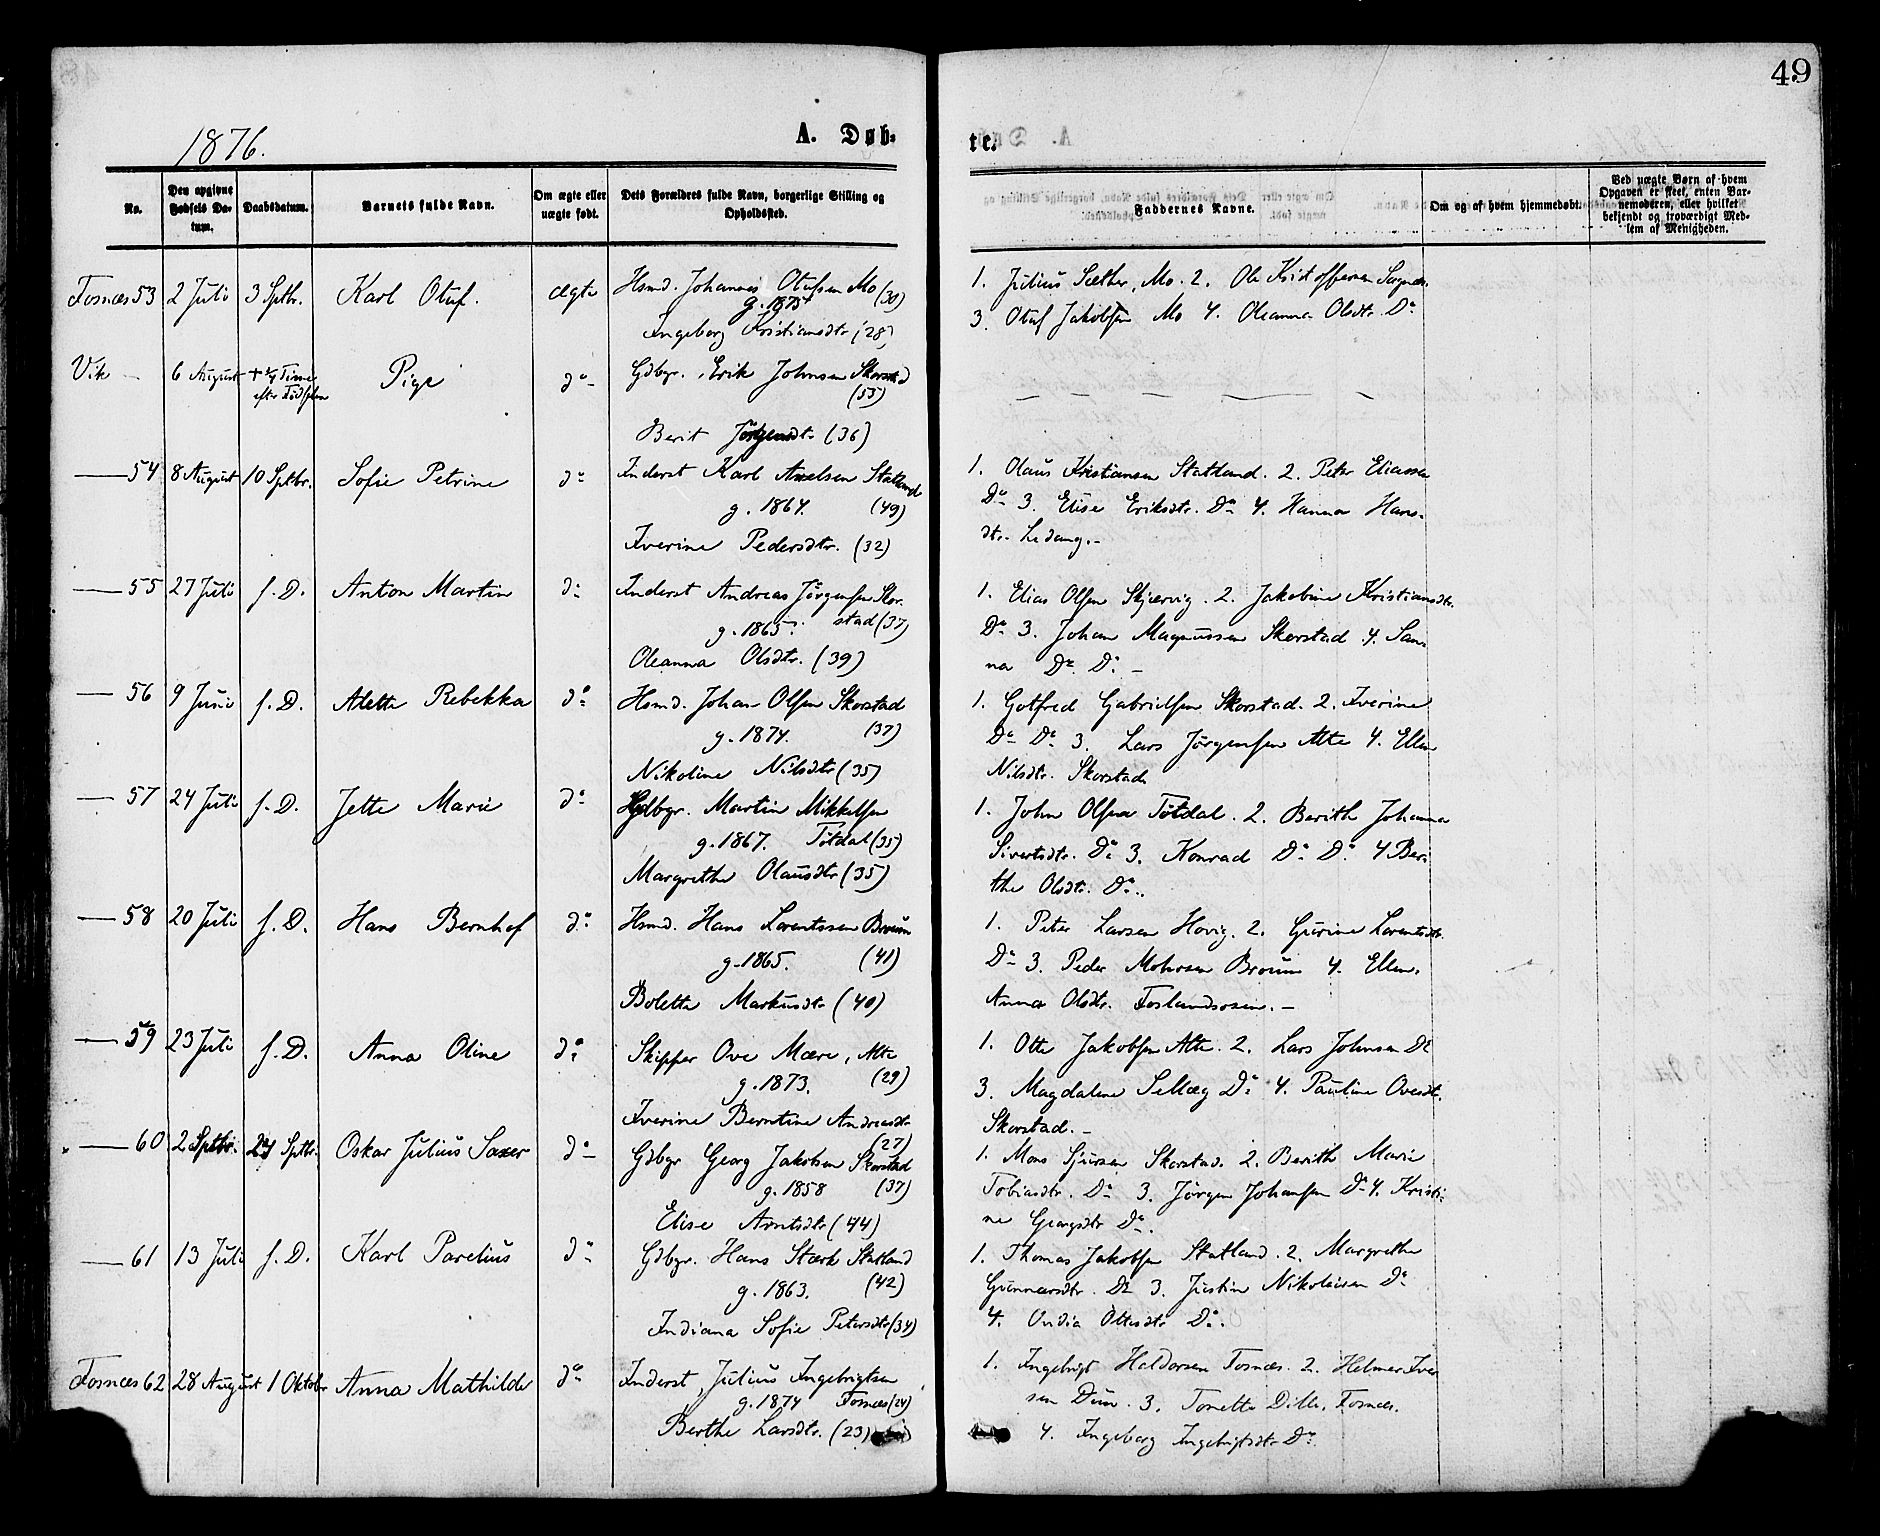 49
1876.
A. Døb-
te.
No.
Den opgivne Fødsels Datum.
Daabsdatum.
Barnets fulde Navn.
Om ægte eller uægte født.
Dets Forældres fulde Navn, borgerlige Stilling og Opholdssted.
Faddernes Navne.
Om og af hvem hjemmedøbt.
Ved uægte Børn af hvem Opgaven er skeet, enten Barnemoderen, eller hvilket bekjendt og troværdigt Medlem af Menigheden.
Fosnæs 53 2 Juli 3 Sptbr. Karl Otuf. ægte Hsmd. Johannes Otufsen Mo (30)
g. 1875
Ingeborg Kristiansdtr (28)
1. Julius Sæther, Mo. 2. Ole Kristoffersen
3. Otuf Jakobsen Mo 4. Oleanna Olsdtr. Do
Vik — 6 August + Time Pige do Gdbgr. Erik Johnsen Skorstad
efter Fødselen (55)
Berit Jörgensdtr (36)
— 54 8 August 10 Sptbr. Sofie Petrine do Inderst Karl Axelsen Statland
g. 1864. (49)
Iverine Pedersdtr. (32)
1. Olaus Kristiansen Statland. 2. Peter Eliassen
Do 3. Elise Eriksdtr. Do 4. Hanna Hans-
dtr. Ledang. -
— 55 27 Juli f. D. Anton Martin do Inderst Andreas Jörgensen Skor-
g. 1865. stad (37)
Oleanna Olsdtr. (39)
1. Elias Olsen Skjærvig. 2. Jakobine Kristiansdtr.
Do 3. Johan Magnussen Skorstad 4. San-
na Do Do -
— 56 9 Juni f. D. Alette Rebekka do Hsmd. Johan Olsen Skorstad
g. 1874. (37)
Nikoline Nilsdtr (35)
1. Gotfred Gabrielsen Skorstad. 2. Iverine
Do Do 3. Lars Jörgensen Alte 4. Ellen
Nilsdtr. Skorstad
— 57 24 Juli f. D. Jette Marie do Gdbgr. Martin Mikkelsen
g. 1867. Tötdal (35)
Margrethe Olausdtr (35)
1. John Olsen Tötdal. 2. Berith Johanna
Sivertsdtr. Do 3. Konrad Do Do 4 Ber-
the Olsdtr. Do.
— 58 20 Juli f. D. Hans Bernhof do Hsmd. Hans Lorentssen Bröum
g. 1865. (41)
Bolette Markusdtr (40)
1. Peter Larsen Hovig. 2. Gurine Lorentsdtr.
Do 3. Peder Mohrsen Bröum 4. Ellen
Anna Olsdtr. Foslandsosen. -
— 59 23 Juli f. D. Anna Oline do Skipper Ove Mære, Alte
g. 1873. (29)
Iverine Berntine Andreasdtr
(27)
1. Otte Jakobsen Alte. 2. Lars Johnsen Do
3. Magdalene Sellæg Do 4. Pauline Ovesdt.
Skorstad. -
— 60 2 Sptbr. 24 Sptbr. Oskar Julius Saxer do Gdbgr Georg Jakobsen Skorstad
g. 1858 (37)
Elise Arntsdtr (44)
1. Mons Sjursen Skorstad. 2. Berith Marie
Tobiasdtr. Do 3. Jörgen Johansen Do 4. Kristi-
ne Georgsdtr Do.
— 61 13 Juli f. D. Karl Parelius do Gdbgr. Hans Stærk Statland
g. 1863. (42)
Indiana Sofie Petersdtr (34)
1. Thomas Jakobsen Statland. 2. Margrethe
Gunnarsdtr. Do 3. Justin Nikolaisen Do
4. Ottesdtr Do.
Fosnæs 62 28 August 1 Oktobr Anna Mathilde do Inderst Julius Ingebrigtsen
g. 1874 Fosnæs (24)
Berthe Larsdtr. (23)
1. Ingebrigt Haldorsen Fosnæs. 2. Helmer Iver
sen Duun. 3. Tonette Dille, Fosnæs.
4. Ingeborg Ingebrigtsdtr Do